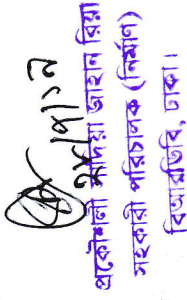 প্রকৌশলী সাদিয়া জাহান রিয়া
সহকারী পরিচালক (নির্মাণ)
বিআরডিবি, ঢাকা।